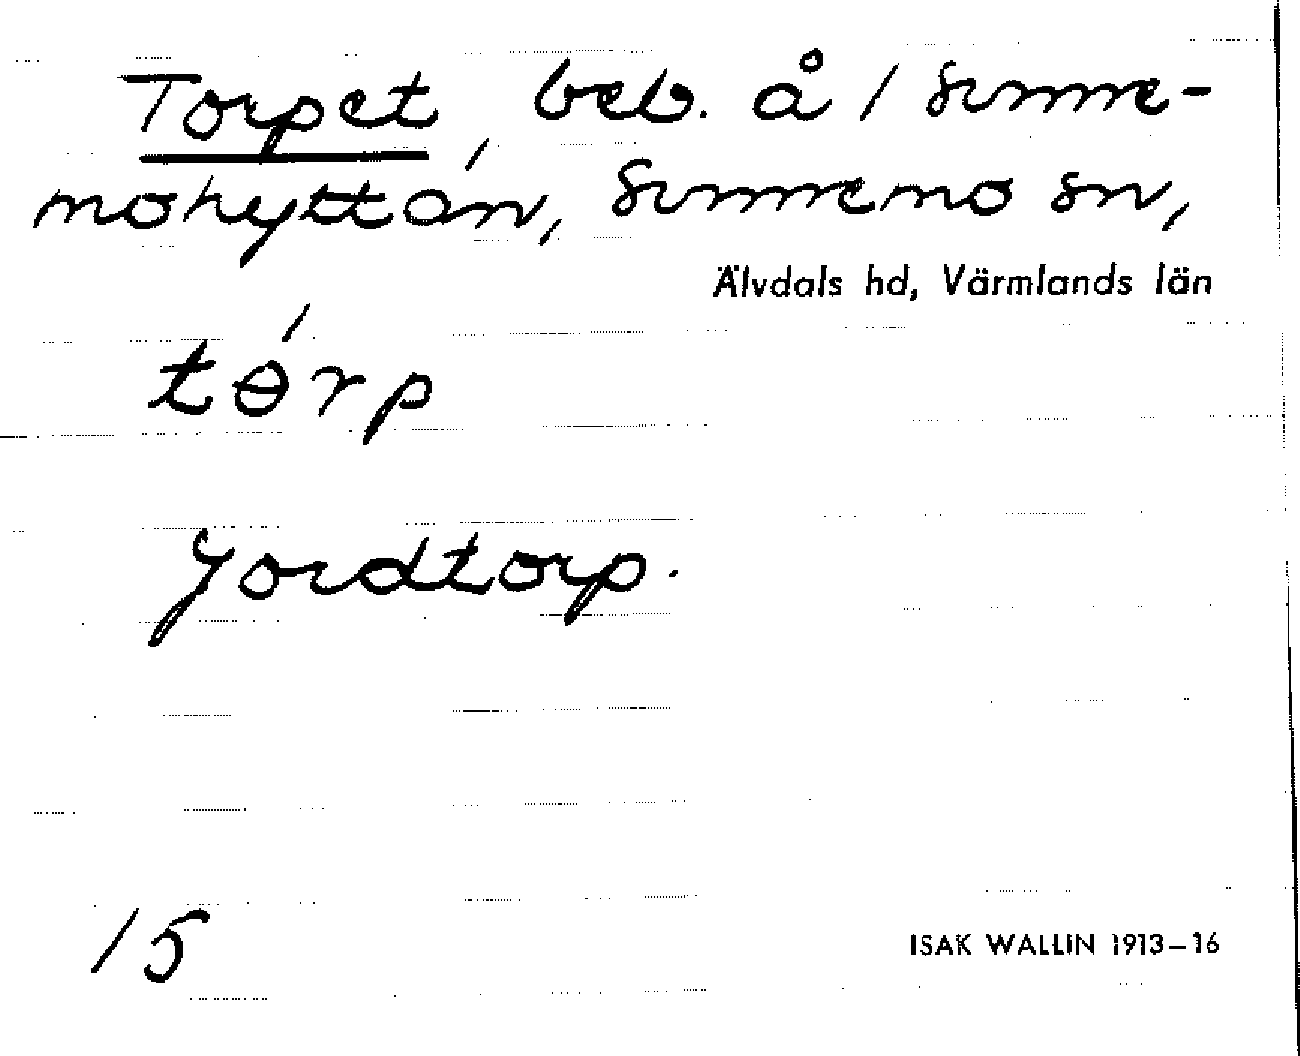 Torpet, beb. å 1 Sunne-
mohyttan, Sunnemo sn,
Älvdals hd, Värmlands län
tɵ́rp
Jordtorp.
15
ISAK WALLIN 1913–16